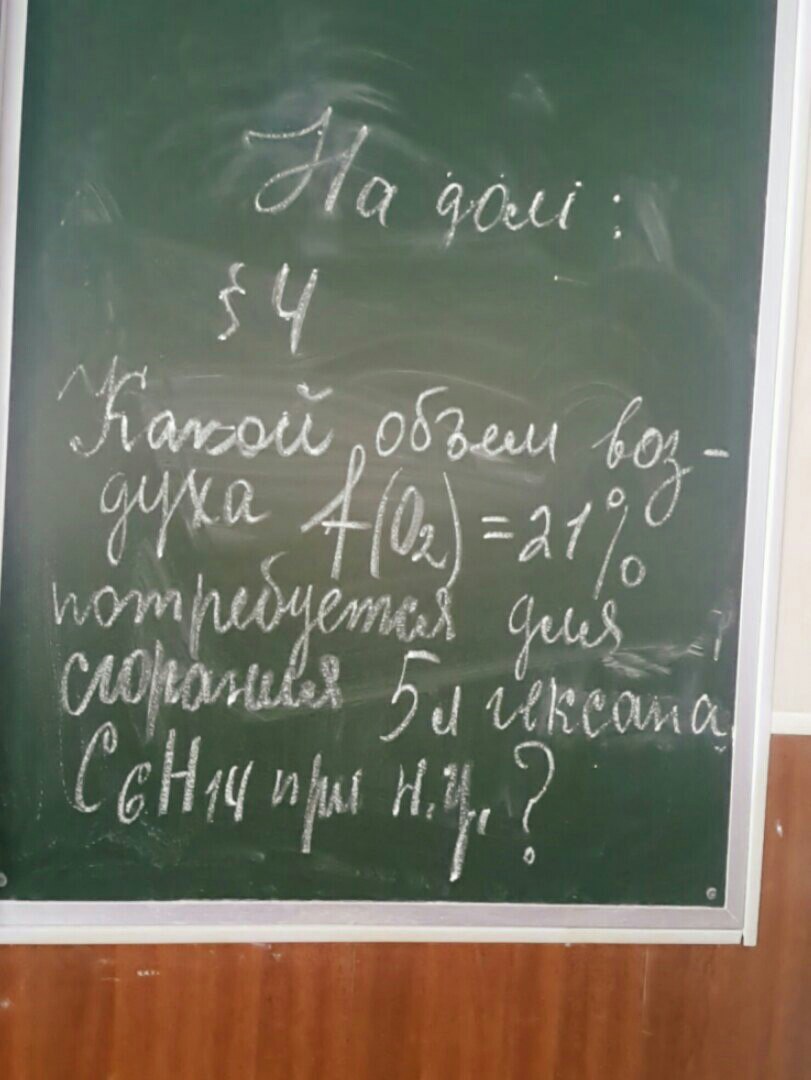 На долі:
§ 4
Какой объем воз-
духа f(O₂) = 21%
потребуется для
сгорания 5 л гексана
C₆H₁₄ при н.у.?